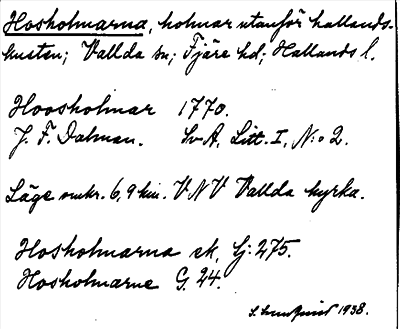 Hosholmarna, holmar utanför hallands-
kusten; Vallda sn; Fjäre hd; Hallands l.
Hoosholmar 1770.
J. F. Dalman. SvA, Litt. I, N:o 2.
Läge omkr. 6,9 km. VNV Vallda kyrka.
Hosholmarna ek. Gj: 275.
Hosholmarne G. 24.
S. Sundquist 1938.